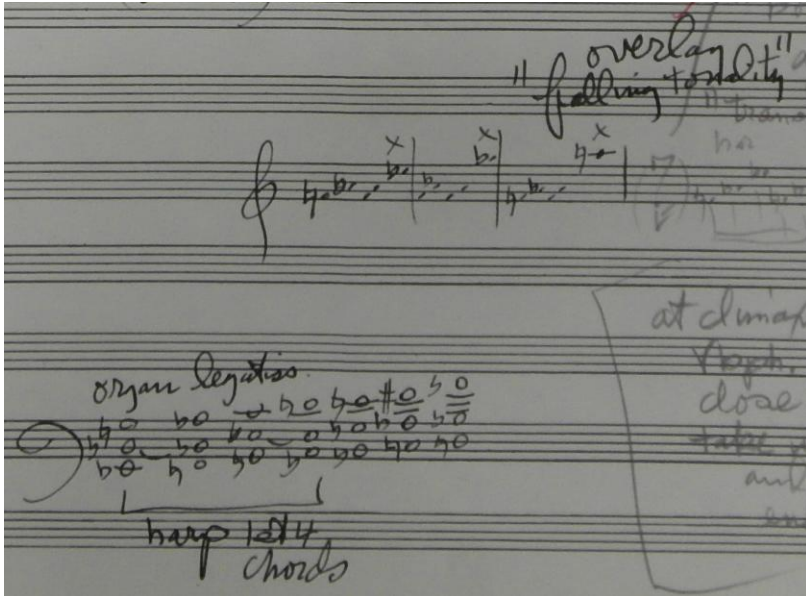 overlay
"falling tonality"
"trans
x x x
at climax
close
organ legatiss.
harp 1st 4
chords